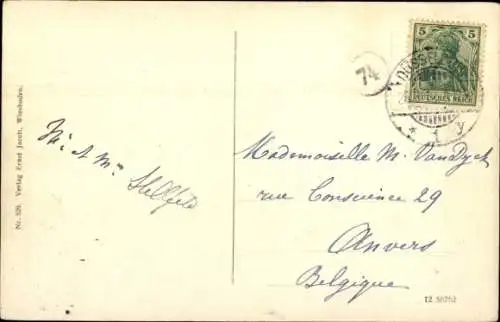 Nr. 529. Verlag Ernst Jacob, Wiesbaden.
5 5
DEUTSCHES REICH
DÜSSEL
* 1 y
74
Mademoiselle M. Van Dyck
rue Conscience 29
Anvers
Belgique
12 50762